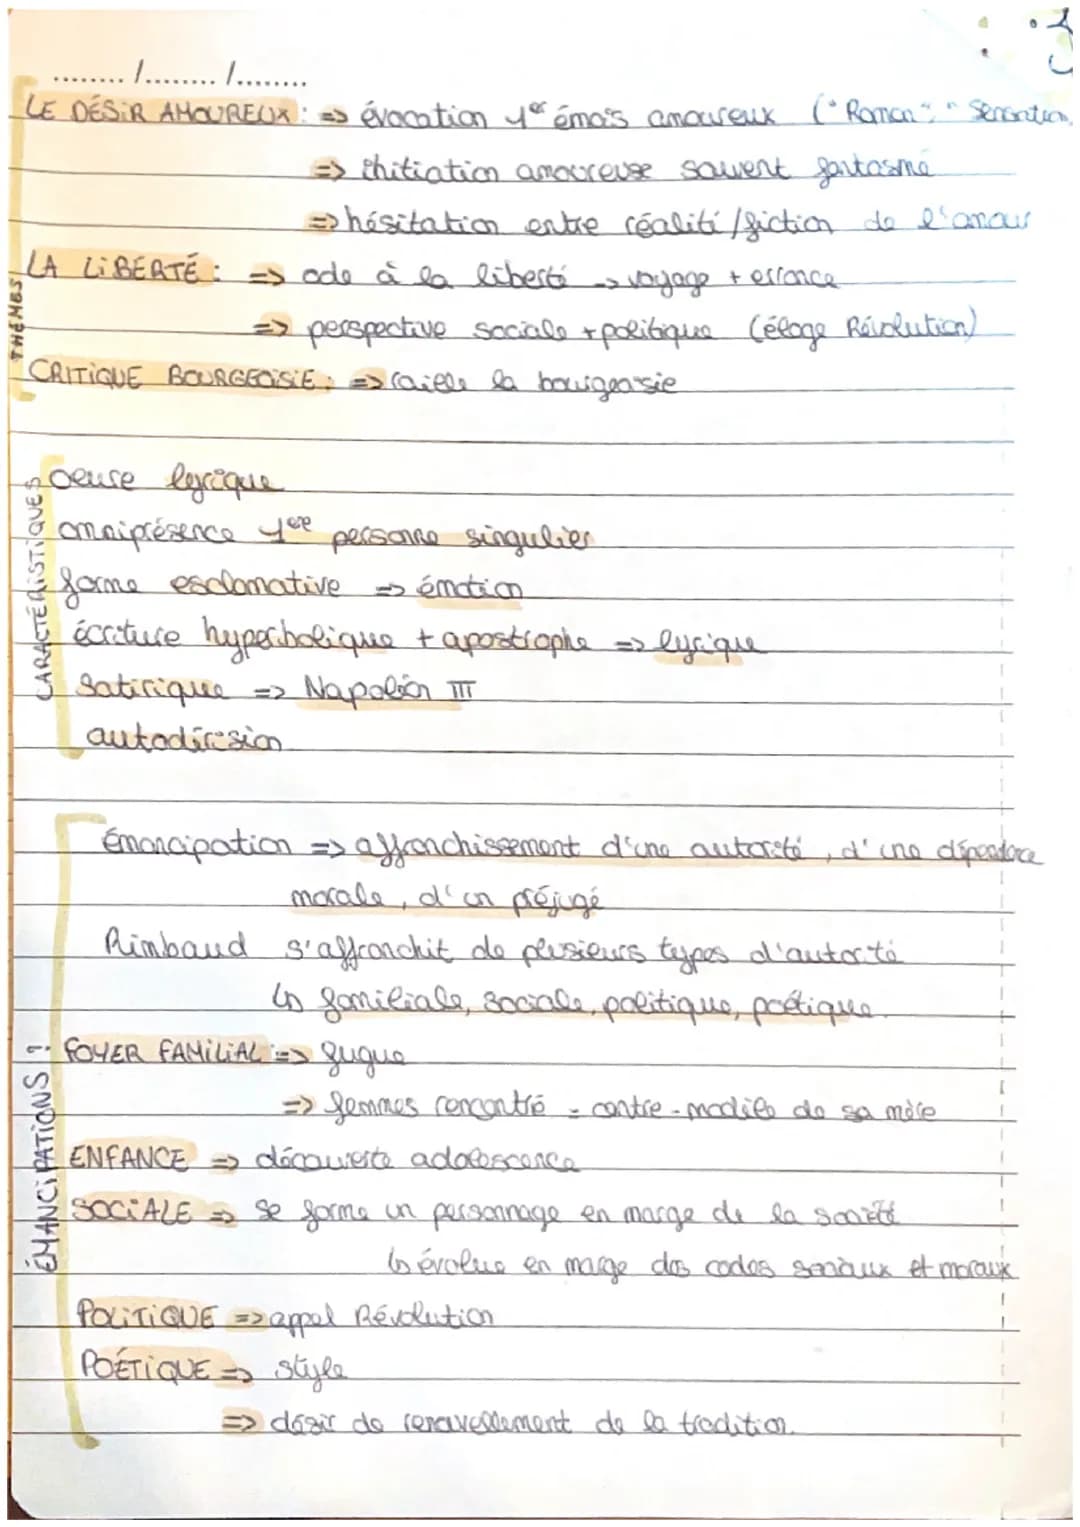 ......../......../........
LE DÉSIR AMOUREUX : => évocation 1er émois amoureux ("Roman", "Sensation
=> initiation amoureuse souvent fantasmé
=> hésitation entre réalité/fiction de l'amour
LA LIBERTÉ : => ode à la liberté -> voyage + errance
=> perspective sociale + politique (éloge Révolution)
CRITIQUE BOURGEOISIE : => raille la bourgeoisie
THÈMES
oeuvre lyrique
omniprésence 1ere personne singulier
forme exclamative => émotion
écriture hyperbolique + apostrophe => lyrique
Satirique => Napoléon III
autodérision
CARACTÉRISTIQUES
Émancipation => affranchissement d'une autorité, d'une dépendance
morale, d'un préjugé
Rimbaud s'affranchit de plusieurs types d'autorité
↳ familiale, sociale, politique, poétique.
FOYER FAMILIAL => fugue
=> femmes rencontré = contre-modèle de sa mère
ENFANCE => découverte adolescence
SOCIALE => se forme un personnage en marge de la société
↳ évolue en marge des codes sociaux et moraux
POLITIQUE => appel Révolution
POÉTIQUE => style
=> désir de renouvellement de la tradition.
ÉMANCIPATIONS ?